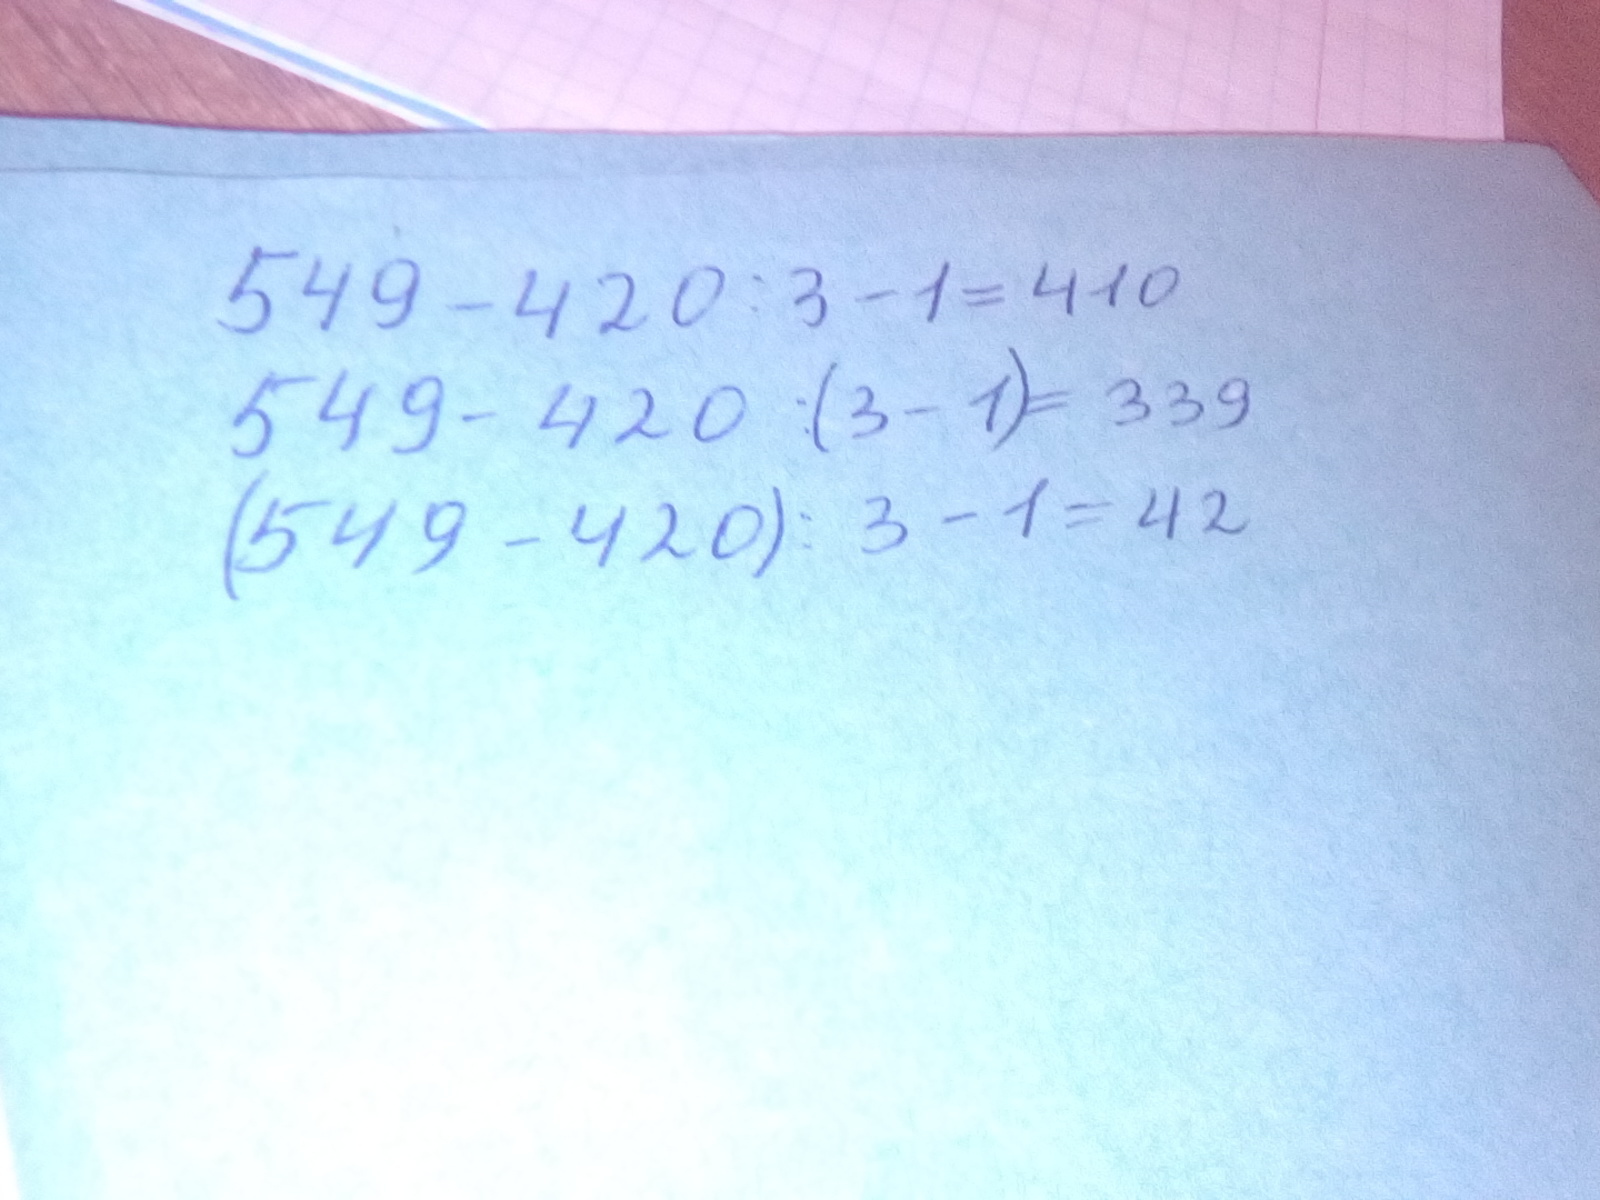 549 - 420 : 3 - 1 = 410
549 - 420 : (3 - 1) = 339
(549 - 420) : 3 - 1 = 42